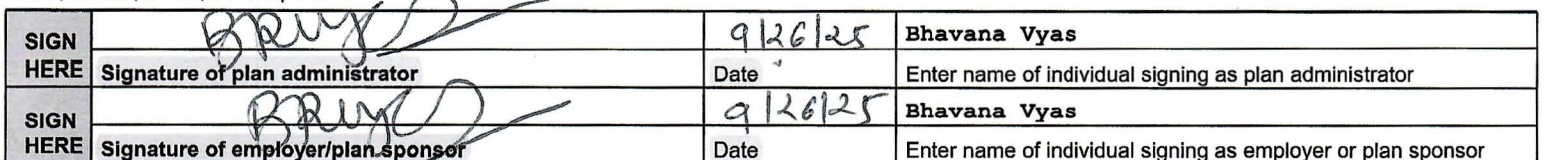 SIGN HERE 9/26/25 Bhavana Vyas
Signature of plan administrator Date Enter name of individual signing as plan administrator
SIGN HERE 9/26/25 Bhavana Vyas
Signature of employer/plan sponsor Date Enter name of individual signing as employer or plan sponsor